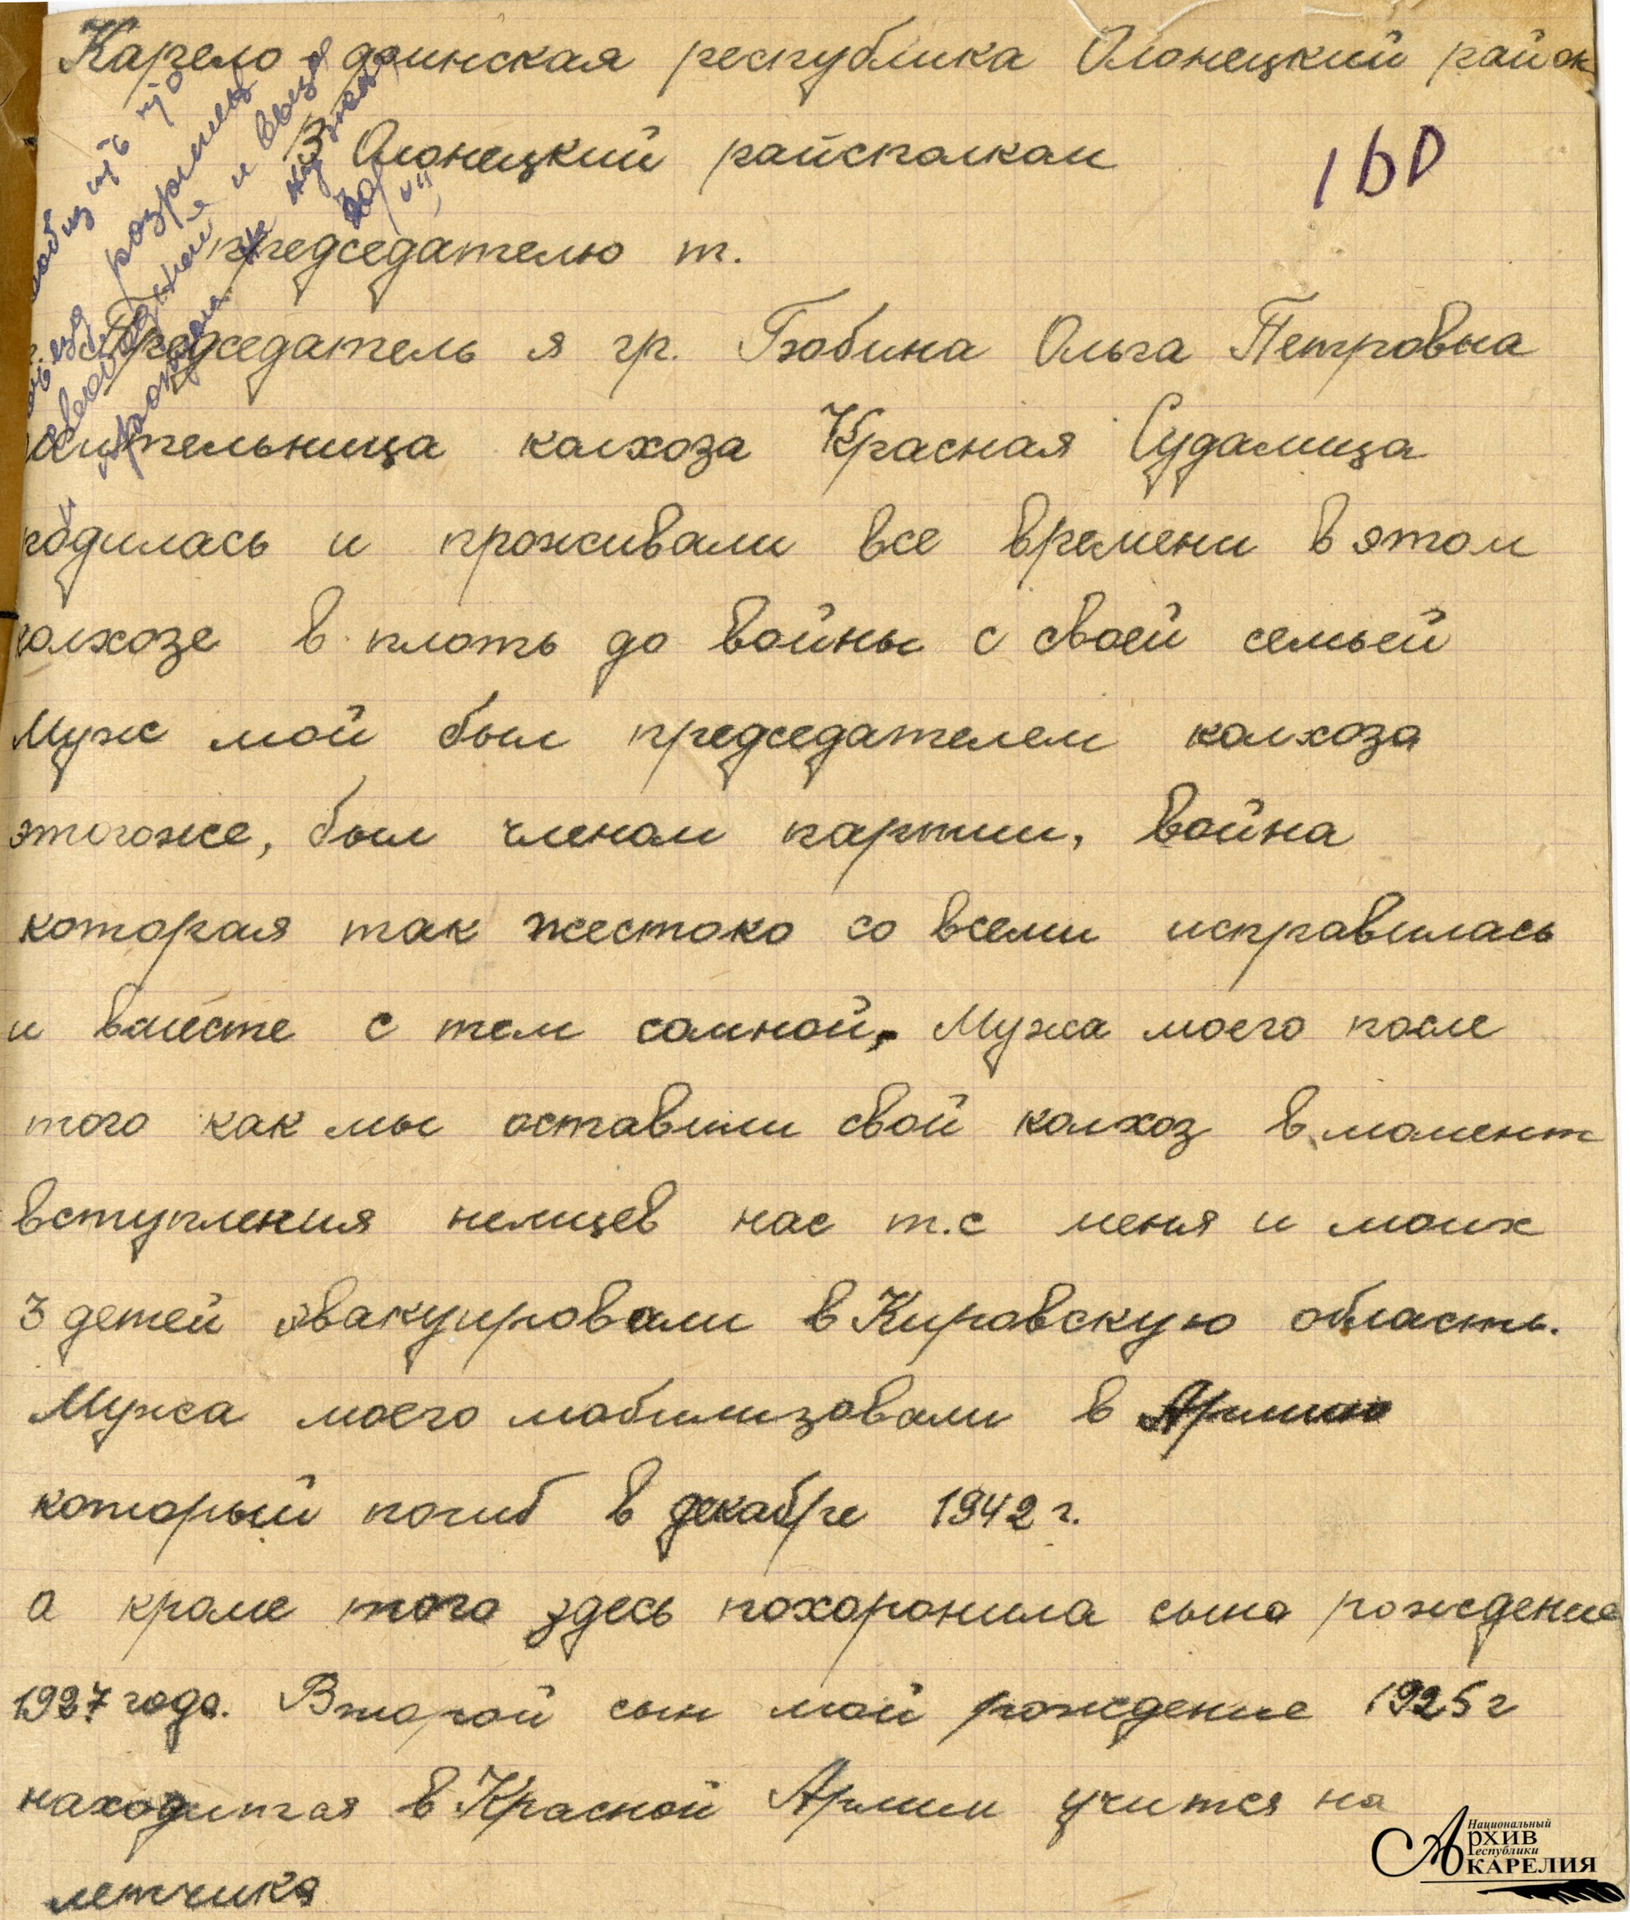 Карело финская республика Олонецкий район
В Олонецкий райсполком
160
председателю т.
Председатель я гр. Бобина Ольга Петровна
жительница колхоза Красная Судалица
родилась и проживали все времени в этом
колхозе в плоть до войны с своей семьей
Муж мой был председателем колхоза
этогоже, был членом партии, война
которая так жестоко со всеми исправилась
и вместе с тем сомной, Мужа моего после
того как мы оставили свой колхоз в момент
вступления немцев нас т.е меня и моих
3 детей эвакуировали в Кировскую область.
Мужа моего мобилизовали в Армию
который погиб в декабре 1942 г.
а кроме того здесь похоронила сына рождение
1927 года. Второй сын мой рождение 1925 г
находится в Красной Армии учится на
летчика
Национальный
Архив
Республики
Карелия